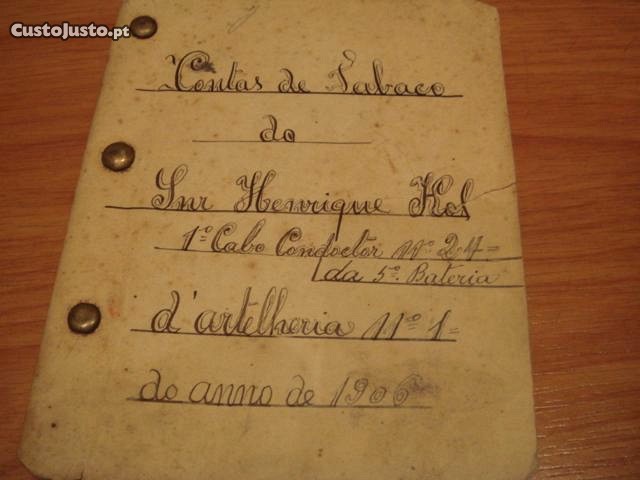 CustoJusto.pt
Contas de Tabaco
do
Snr Henrique Kol
1º Cabo Condoctor Nº 24=
da 5ª. Bateria
d'artelheria Nº 1=
do anno de 1906